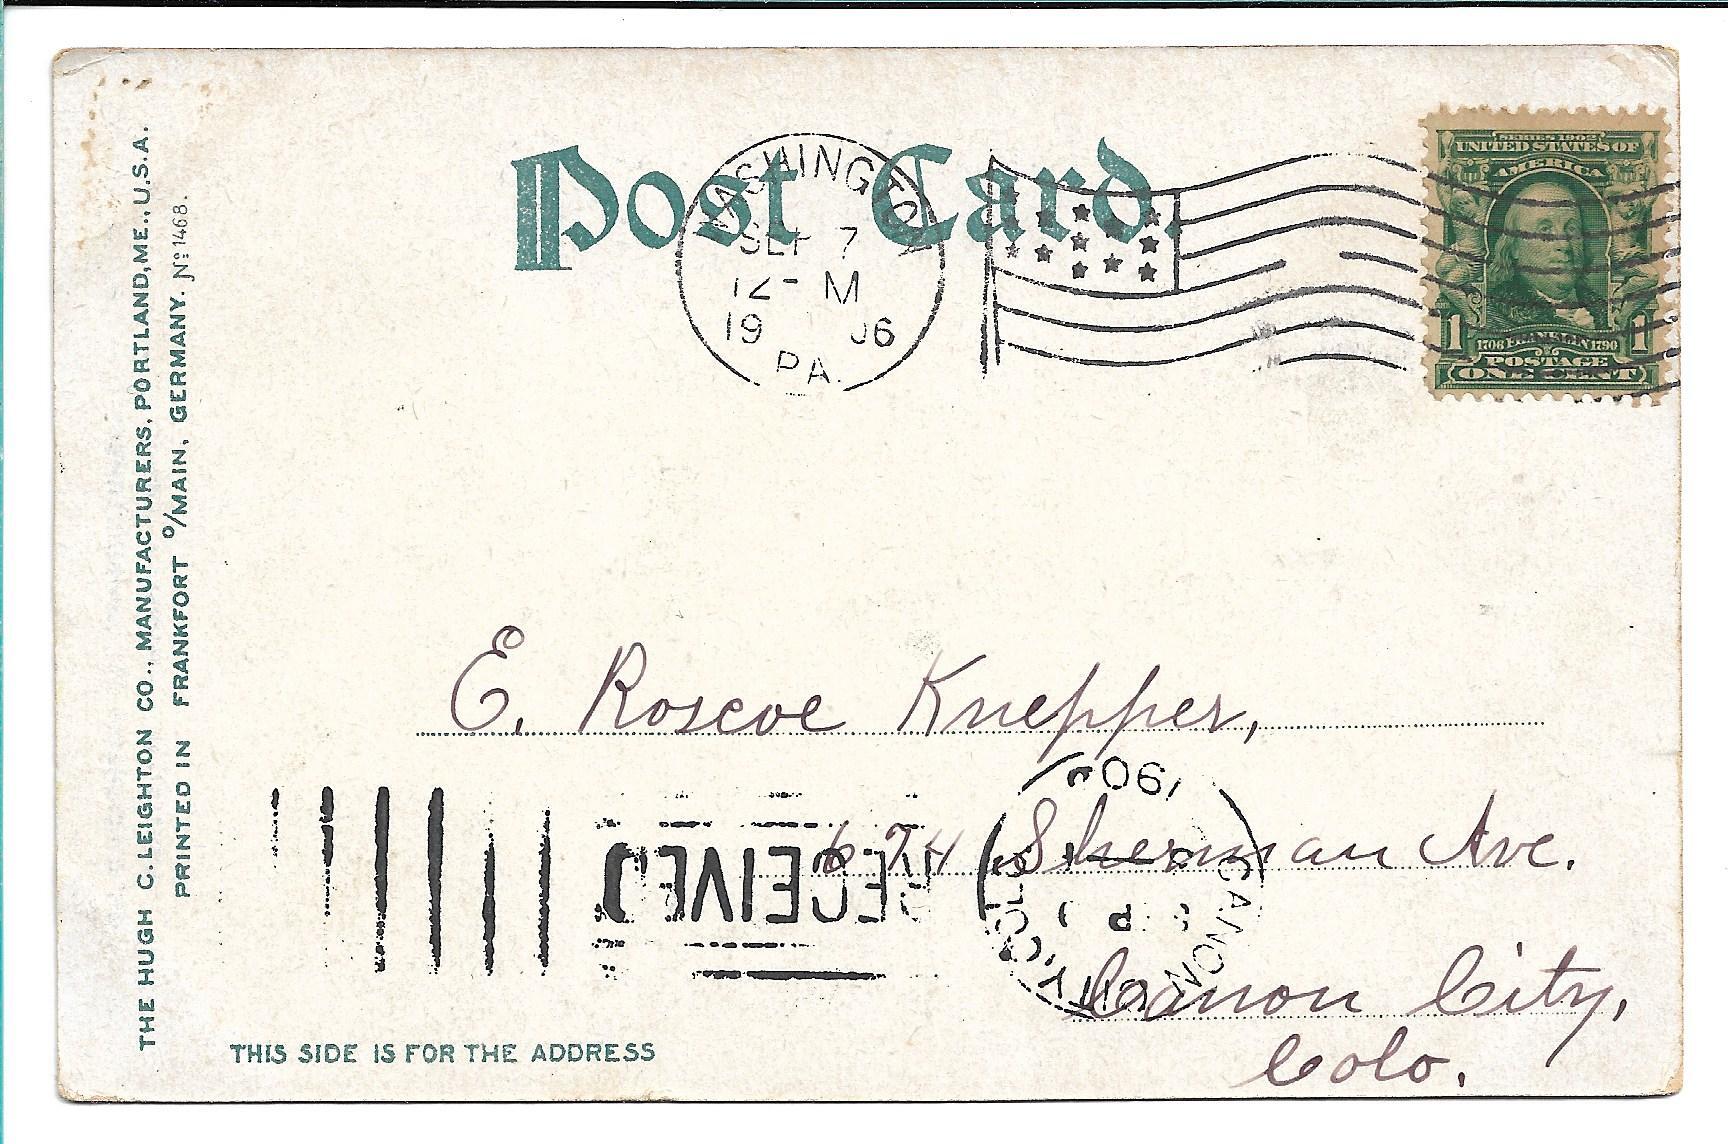 THE HUGH C. LEIGHTON CO., MANUFACTURERS, PORTLAND, ME., U.S.A.
PRINTED IN FRANKFORT o/MAIN, GERMANY. No 1468.
Post Card.
WASHINGTON
SEP 7
12- M
19 06
PA.
SERIES 1902
UNITED STATES OF
AMERICA
1 1706 FRANKLIN 1790 1
POSTAGE
ONE CENT
E. Roscoe Knepper,
674 Sherman Ave.
Canon City,
Colo.
RECEIVED
CANON CITY, COLO.
190
P
THIS SIDE IS FOR THE ADDRESS